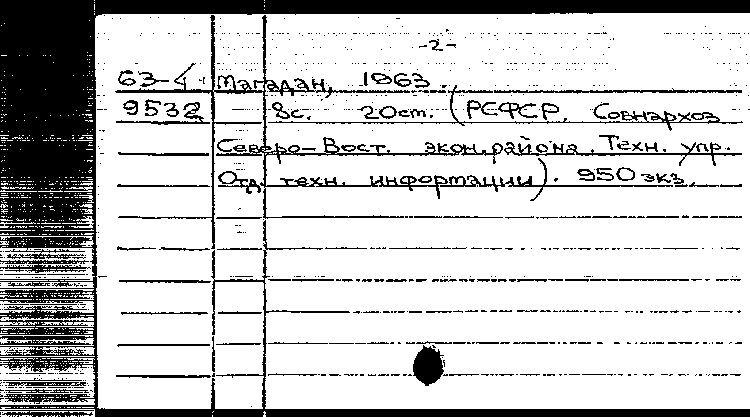 -2-
63-4 Магадан, 1963.
9532 — 8с. 20ст. (РСФСР. Совнархоз
Северо-Вост. экон.района. Техн. упр.
Отд. техн. информации). 950 экз.